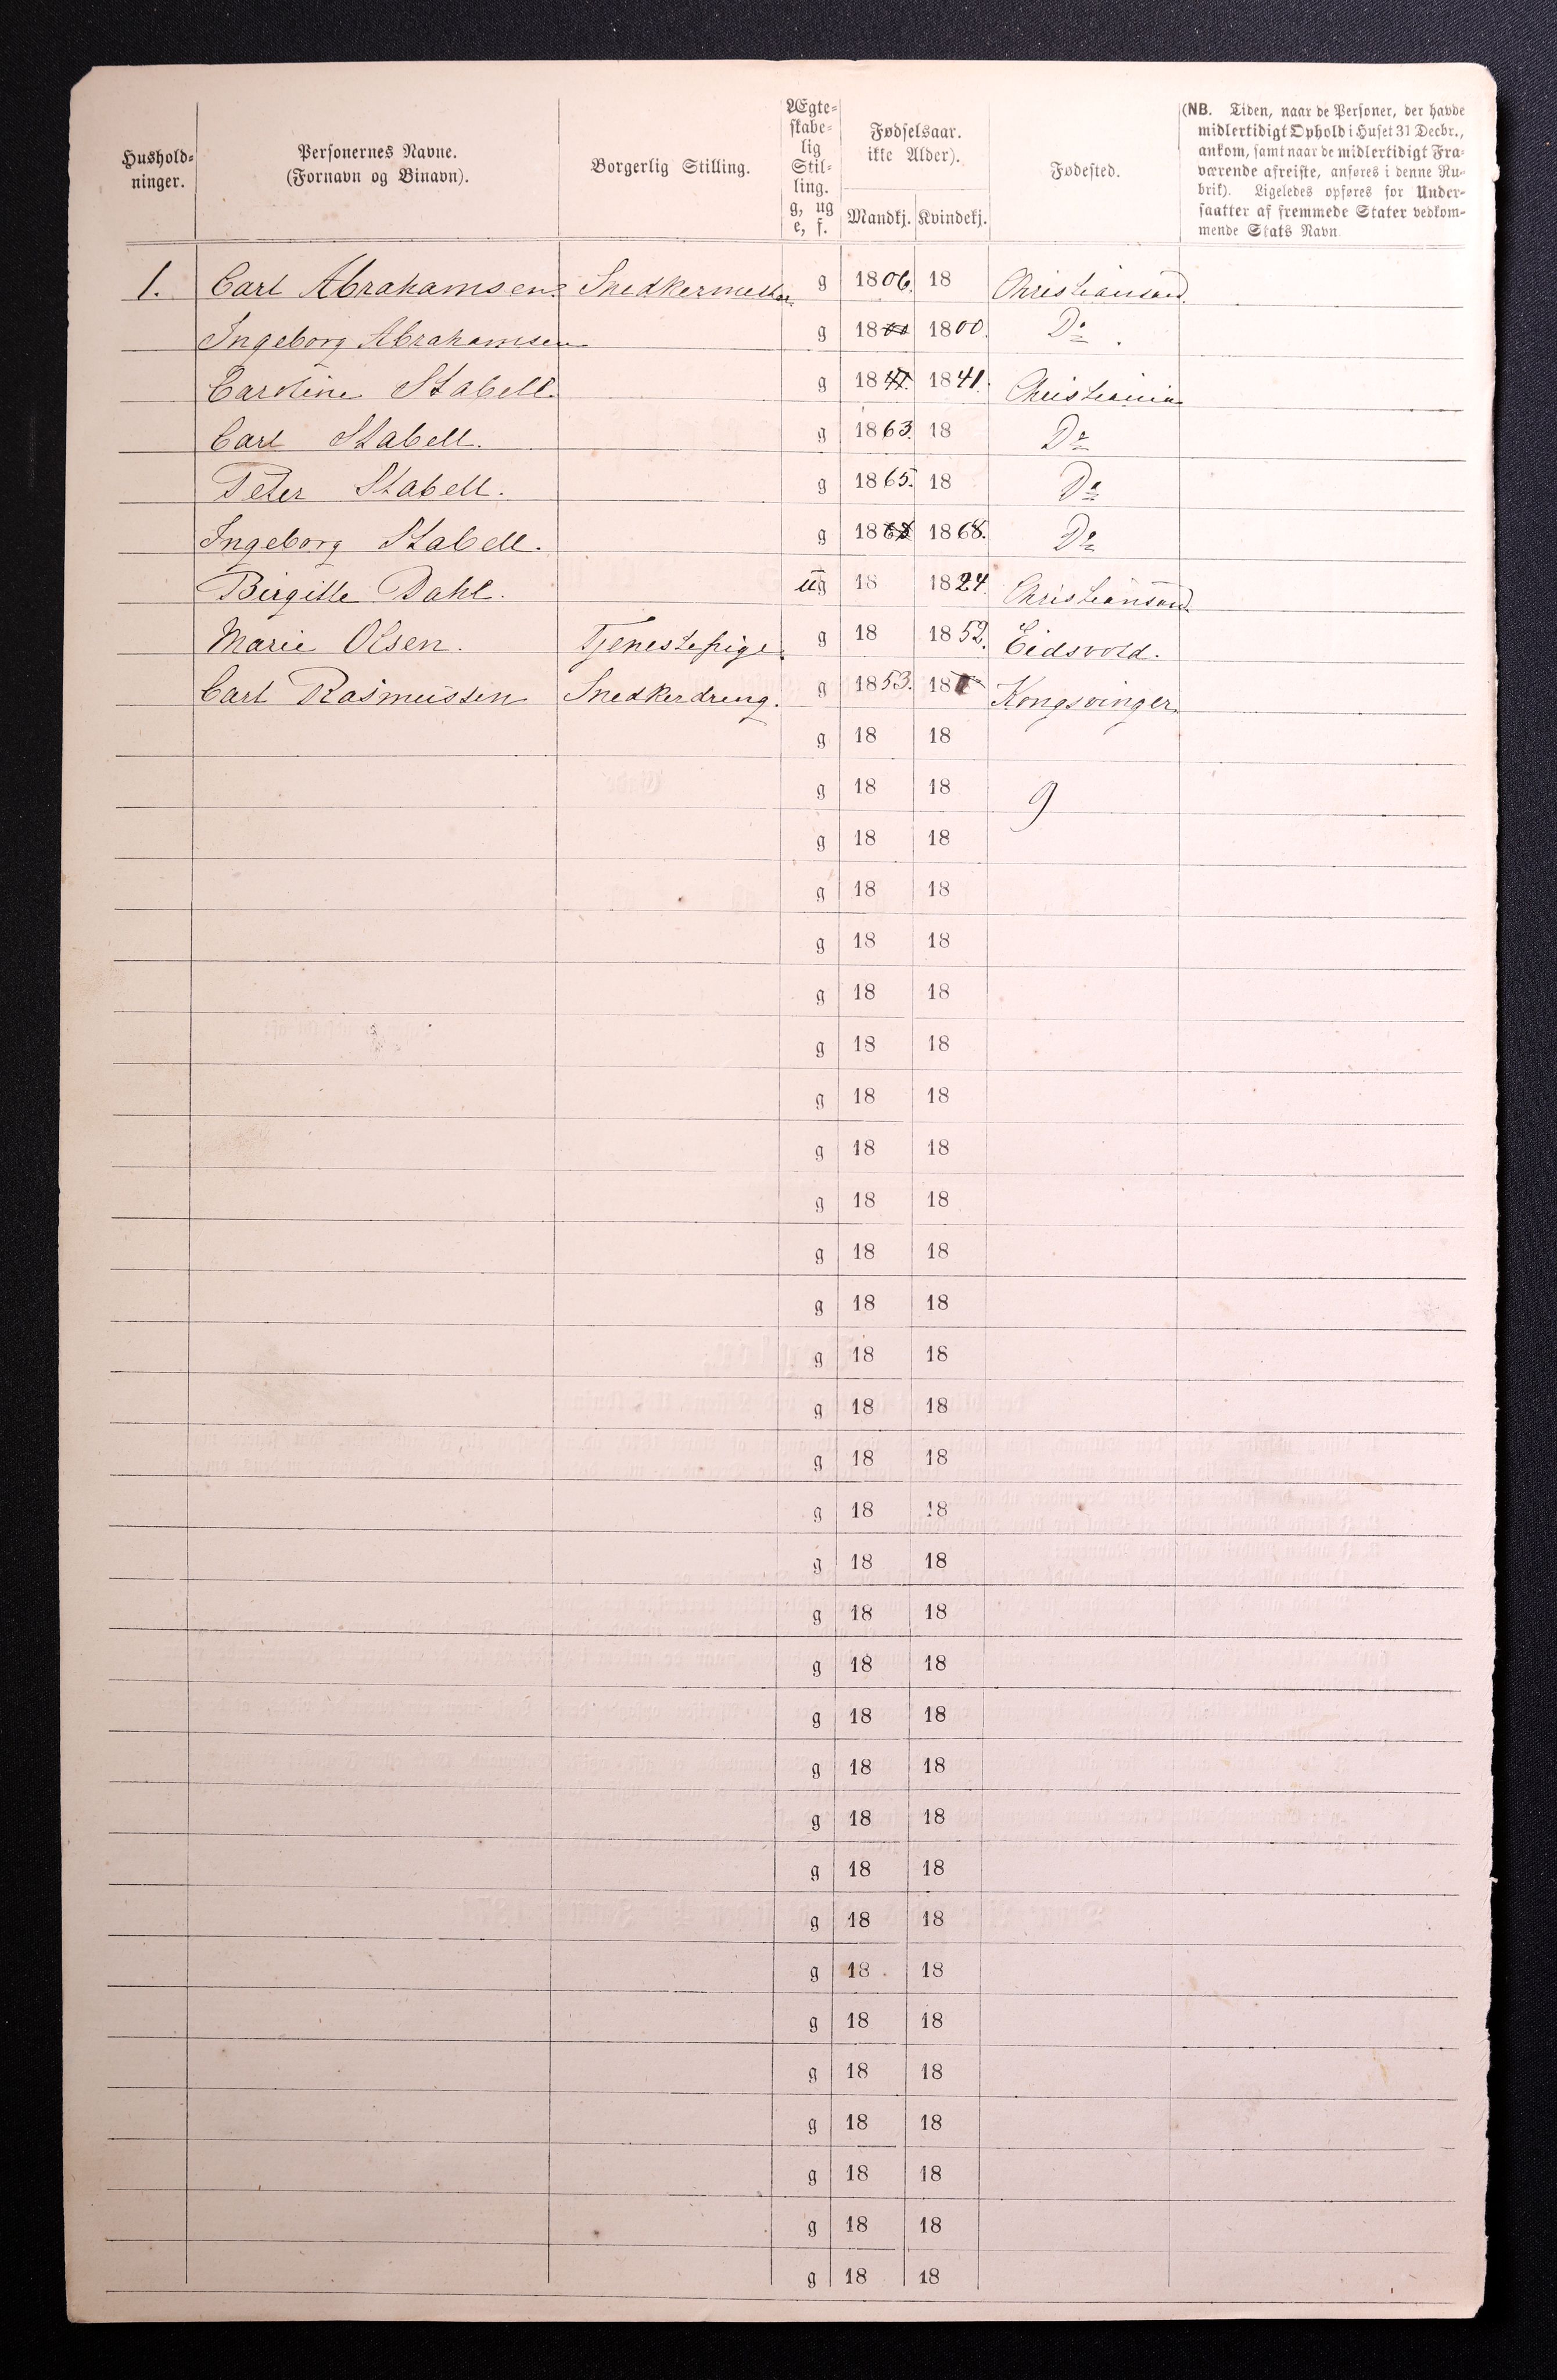 Hushold-
ninger.
Personernes Navne.
(Fornavn og Binavn).
Borgerlig Stilling.
Ægte-
skabe-
lig
Stil-
ling.
g, ug
e, f.
Fødselsaar.
ikke Alder).
Mandkj. Kvindekj.
Fødested.
(NB. Tiden, naar de Personer, der havde
midlertidigt Ophold i Huset 31 Decbr.,
ankom, samt naar de midlertidigt Fra-
værende afreiste, anføres i denne Ru-
brik). Ligeledes opføres for Under-
saatter af fremmede Stater vedkom-
mende Stats Navn.
1. Carl Abrahamsen Snedkermester g 1806. 18 Christiansand.
Ingeborg Abrahamsen g 18 1800. Do.
Caroline Stabell. g 1841. 1841. Christiania
Carl Stabell. g 1863. 18 Do
Peter Stabell. g 1865. 18 Do
Ingeborg Stabell. g 1868 1868. Do
Birgitte Dahl. ug 18 1824. Christiansand.
Marie Olsen. Tjenestepige. g 18 1852. Eidsvold.
Carl Rasmussen Snedkerdreng. g 1853. 18 Kongsvinger.
g 18 18
g 18 18 9
g 18 18
g 18 18
g 18 18
g 18 18
g 18 18
g 18 18
g 18 18
g 18 18
g 18 18
g 18 18
g 18 18
g 18 18
g 18 18
g 18 18
g 18 18
g 18 18
g 18 18
g 18 18
g 18 18
g 18 18
g 18 18
g 18 18
g 18 18
g 18 18
g 18 18
g 18 18
g 18 18
g 18 18
g 18 18